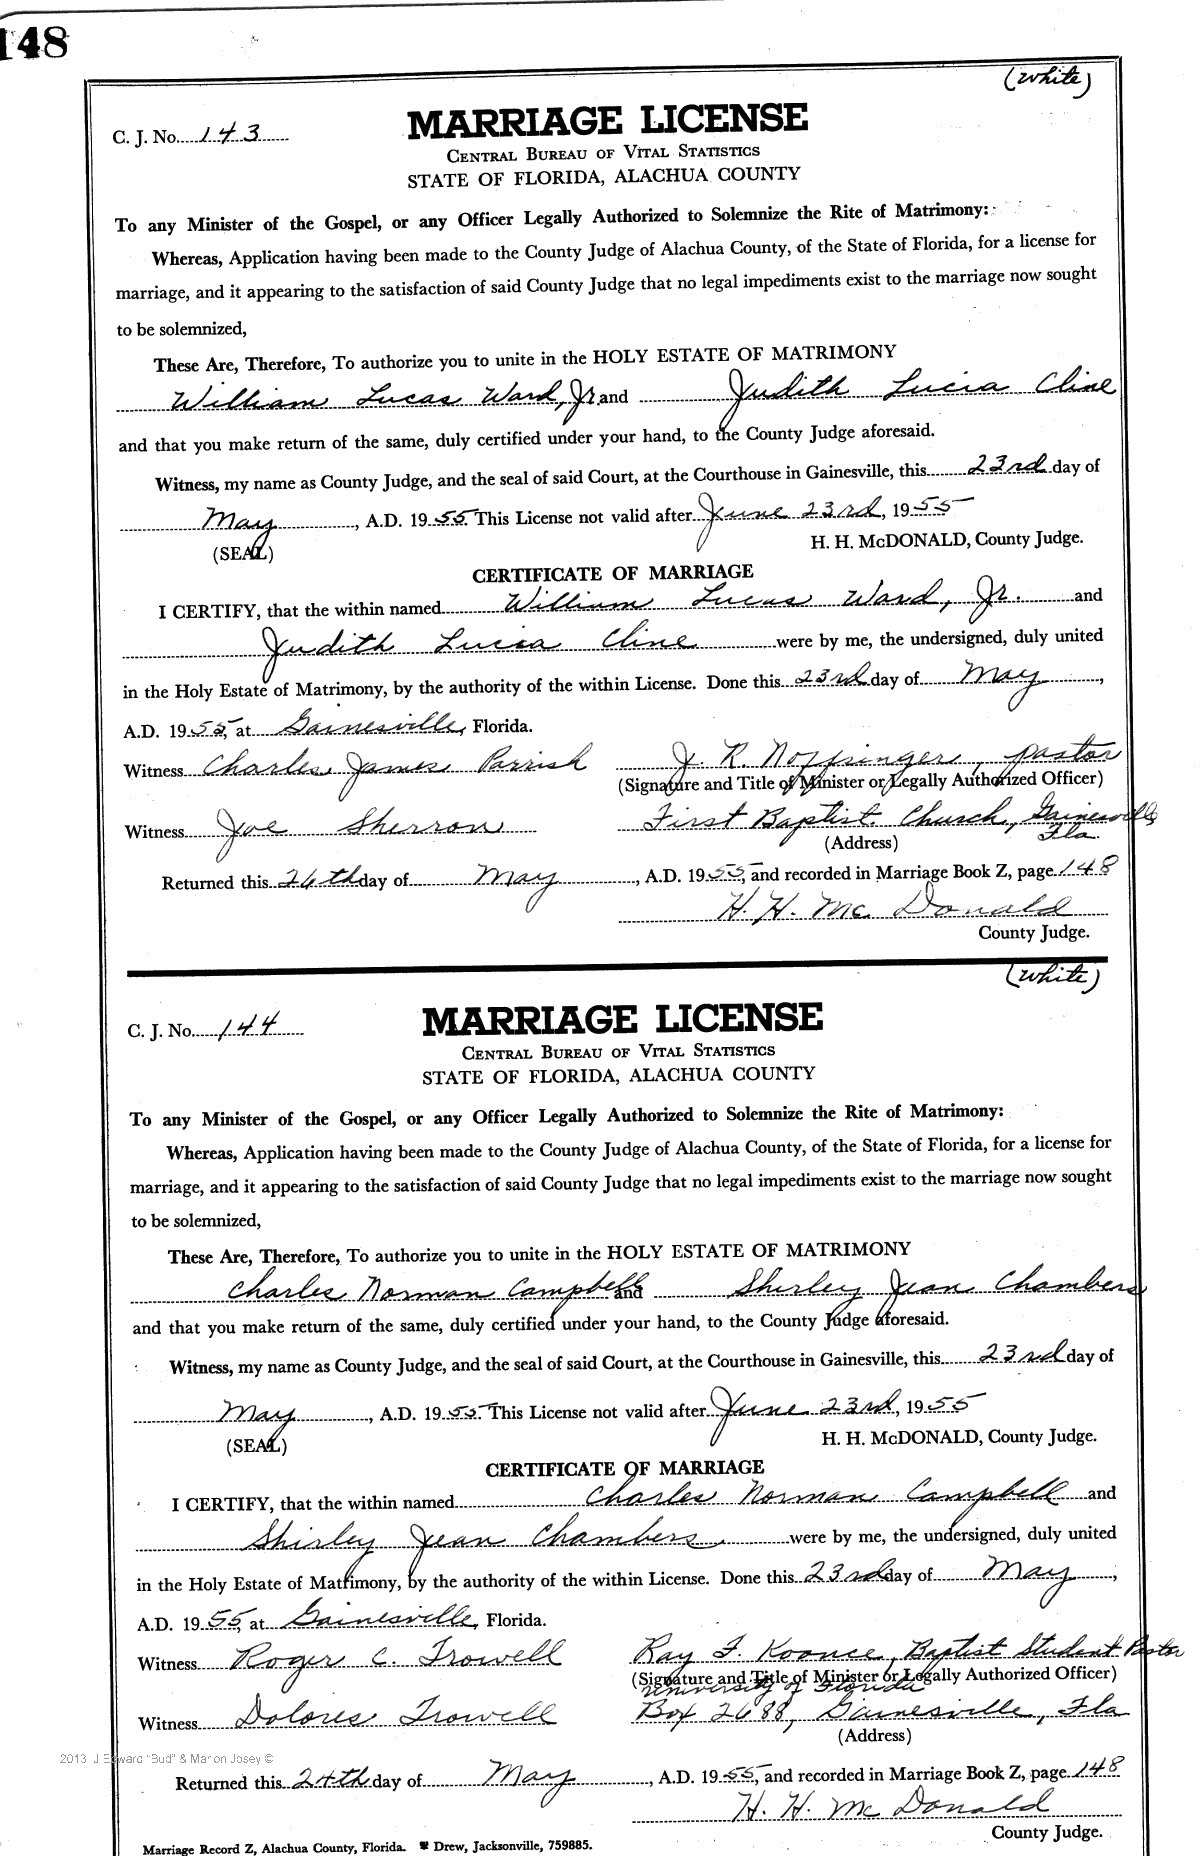 148
(White)
C. J. No. 143
MARRIAGE LICENSE
CENTRAL BUREAU OF VITAL STATISTICS
STATE OF FLORIDA, ALACHUA COUNTY
To any Minister of the Gospel, or any Officer Legally Authorized to Solemnize the Rite of Matrimony:
Whereas, Application having been made to the County Judge of Alachua County, of the State of Florida, for a license for
marriage, and it appearing to the satisfaction of said County Judge that no legal impediments exist to the marriage now sought
to be solemnized,
These Are, Therefore, To authorize you to unite in the HOLY ESTATE OF MATRIMONY
William Lucas Ward, Jr. and Judith Lucia Cline
and that you make return of the same, duly certified under your hand, to the County Judge aforesaid.
Witness, my name as County Judge, and the seal of said Court, at the Courthouse in Gainesville, this 23rd day of
May, A.D. 1955. This License not valid after June 23rd, 1955
(SEAL) H. H. McDONALD, County Judge.
CERTIFICATE OF MARRIAGE
I CERTIFY, that the within named William Lucas Ward, Jr. and
Judith Lucia Cline were by me, the undersigned, duly united
in the Holy Estate of Matrimony, by the authority of the within License. Done this 23rd day of May,
A.D. 1955, at Gainesville, Florida.
Witness Charles James Parrish J. R. Noffsinger, pastor
(Signature and Title of Minister or Legally Authorized Officer)
Witness Joe Sherron First Baptist Church, Gainesville
Fla.
(Address)
Returned this 26th day of May, A.D. 1955, and recorded in Marriage Book Z, page 148
H. H. McDonald
County Judge.
(White)
C. J. No. 144
MARRIAGE LICENSE
CENTRAL BUREAU OF VITAL STATISTICS
STATE OF FLORIDA, ALACHUA COUNTY
To any Minister of the Gospel, or any Officer Legally Authorized to Solemnize the Rite of Matrimony:
Whereas, Application having been made to the County Judge of Alachua County, of the State of Florida, for a license for
marriage, and it appearing to the satisfaction of said County Judge that no legal impediments exist to the marriage now sought
to be solemnized,
These Are, Therefore, To authorize you to unite in the HOLY ESTATE OF MATRIMONY
Charles Norman Campbell and Shirley Jean Chambers
and that you make return of the same, duly certified under your hand, to the County Judge aforesaid.
Witness, my name as County Judge, and the seal of said Court, at the Courthouse in Gainesville, this 23rd day of
May, A.D. 1955. This License not valid after June 23rd, 1955
(SEAL) H. H. McDONALD, County Judge.
CERTIFICATE OF MARRIAGE
I CERTIFY, that the within named Charles Norman Campbell and
Shirley Jean Chambers were by me, the undersigned, duly united
in the Holy Estate of Matrimony, by the authority of the within License. Done this 23rd day of May,
A.D. 1955, at Gainesville, Florida.
Witness Roger C. Trowell Ray F. Koonce, Baptist Student Pastor
(Signature and Title of Minister or Legally Authorized Officer)
University of Florida
Witness Dolores Trowell Box 2688, Gainesville, Fla
(Address)
2013 J Edward "Bud" & Marion Josey ©
Returned this 24th day of May, A.D. 1955, and recorded in Marriage Book Z, page 148
H. H. McDonald
County Judge.
Marriage Record Z, Alachua County, Florida. Drew, Jacksonville, 759885.